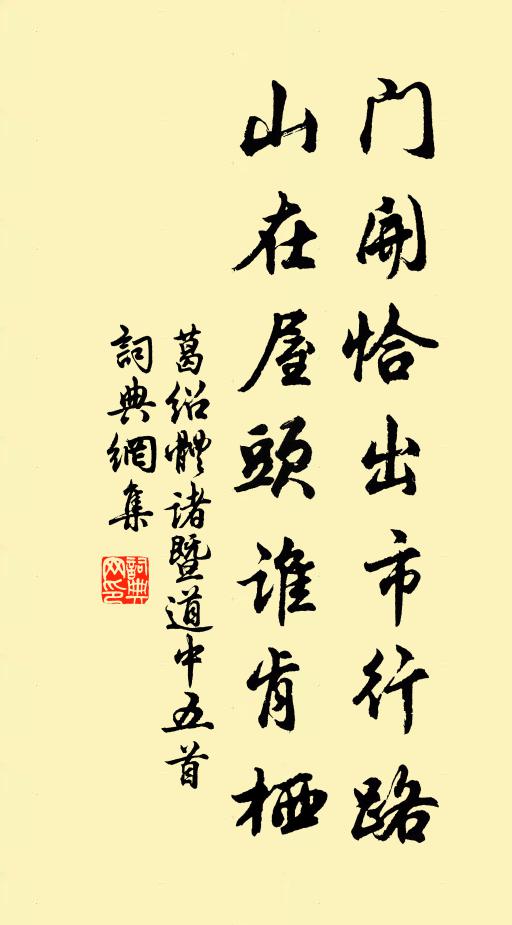 门開恰出市行路
山在屋頭誰肯栖
葛绍體诸暨道中五首
詞典網集
詞典网印